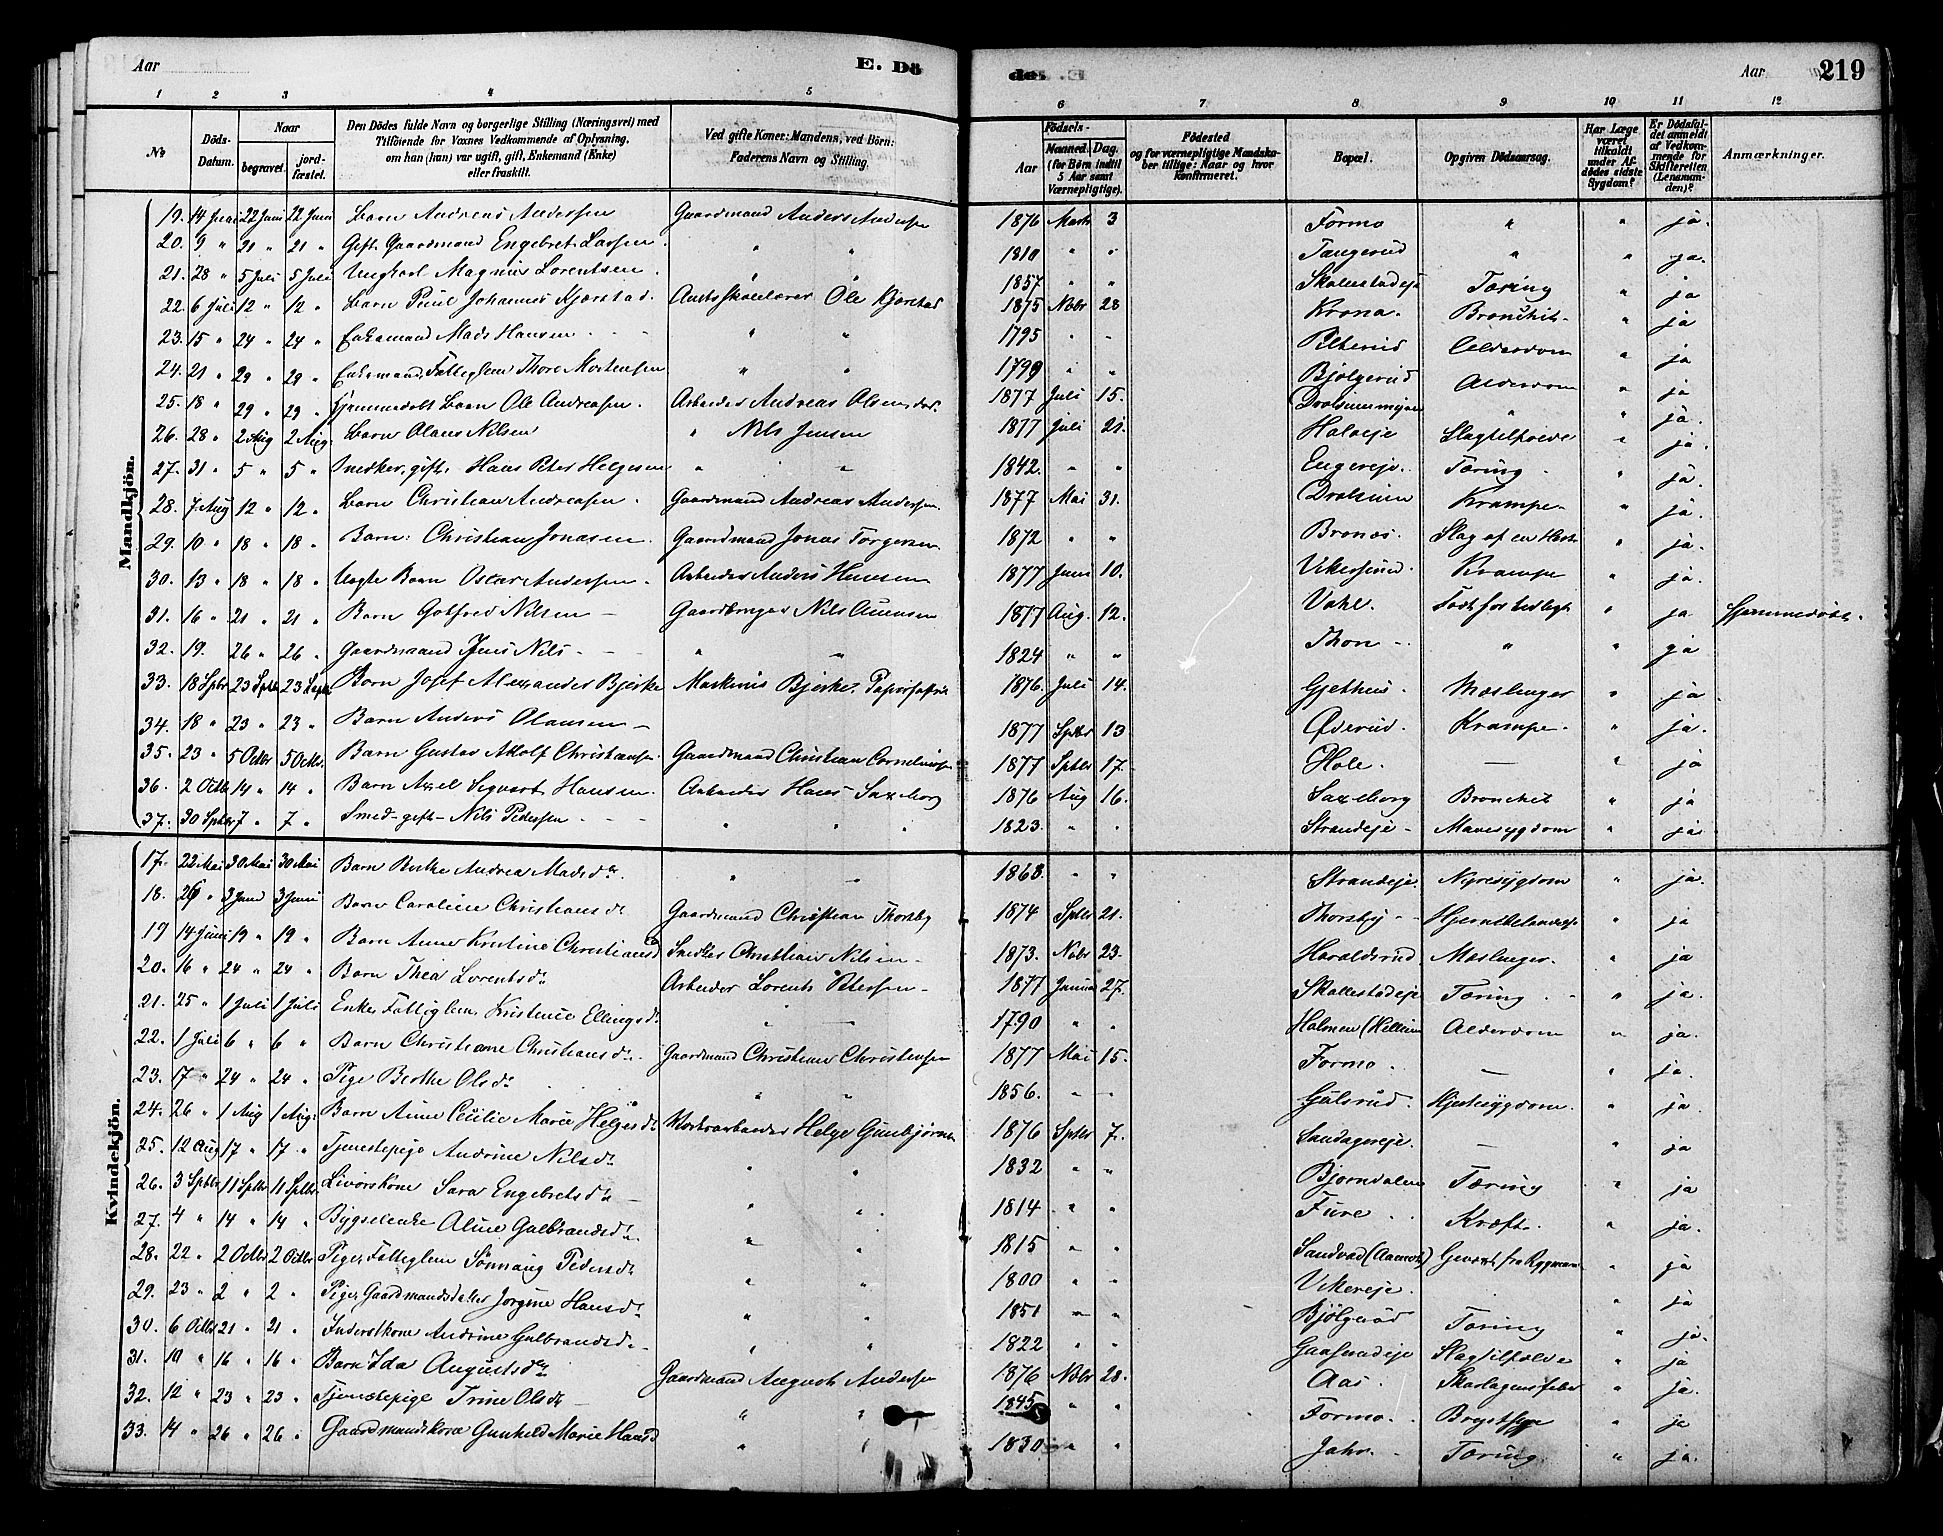 Aar E. Dö
de. E. Aar 219
1 2 3 4 5 6 7 8 9 10 11 12
No. Döds-Datum. Naar begravet. jordfæstet. Den Dödes fulde Navn og borgerlige Stilling (Næringsvei) med Tilföiende for Voxnes Vedkommende af Oplysning, om han (hun) var ugift, gift, Enkemand (Enke) eller fraskilt. Ved gifte Koner: Mandens, ved Börn: Faderens Navn og Stilling. Födsels- Aar Maaned. Dag. (for Börn indtil 5 Aar samt Værnepligtige). Födested og for værnepligtige Mandskaber tillige: Naar og hvor konfirmeret. Bopæl. Opgiven Dödsaarsag. Har Læge været tilkaldt under Afdödes sidste Sygdom? Er Dödsfaldet anmeldt af Vedkommende for Skifteretten (Lensmanden)? Anmærkninger.
Mandkjön.
19. 14 Juni 22 Juni 22 Juni Barn Andreas Andersen Gaardmand Anders Andersen 1876 Marts 3 Formo " " ja.
20. 9 " 21 " 21 " Gift Gaardmand Engebret Larsen. " " 1810 " " Tangerud " " ja.
21. 28 " 5 Juli 5 Juli Ungkarl Magnus Lorentsen. " " 1857 " " Skallestadeje Tæring " ja
22. 6 Juli 12 " 12 " Barn Paul Johannes Kjørstad. Amtsskolelærer Ole Kjørstad 1875 Nobr 28 Krona. Bronchit. " ja
23. 15 " 24 " 24 " Enkemand Mads Hansen " " 1795 " " Pilterud Alderdom " ja
24. 21 " 29 " 29 " Enkemand, Fattiglem Thore Mortensen " " 1799 " " Bjølgerud Alderdom " ja
25. 18 " 29 " 29 " Hjemmedøbt Barn Ole Andreasen. Arbeider Andreas Olsen 1877 Juli 15. " " ja.
26. 28 " 2 Aug 2 Aug. Barn Olaus Nilsen " Nils Jensen 1877 Juli 21. Slagtilfælde " ja.
27. 31 " 5 " 5 " Snedker, gift, Hans Peter Helgesen " " 1842. " " Engereje. Tæring. " ja.
28. 7 Aug 12 " 12 " Barn Christian Andreasen. Gaardmand Andreas Andersen 1877 Mai 31. Drolsum Krampe. " ja.
29. 10 " 18 " 18 " Barn: Christian Jonasen. Gaardmand Jonas Torgersen 1872 " " Slag af en Hest " ja.
30. 13 " 18 " 18 " Uægte Barn Oscar Andersen. Arbeider Anders Hansen 1877 Juni 10. Vikersund. Krampe " ja.
31. 16 " 21 " 21 " Barn Gotfred Nilsen Gaardbruger Nils 1877 Aug. 12. Født for tidligt " ja Hjemmedøbt.
32. 19. 26 " 26 " Gaardmand Jens Nils " " 1824 " " Thon " " ja
33. 18 Sptbr 23 Sptbr 23 Septbr Barn Josef Alexander Bjerke Maskinist Bjerke. Papirfabrik 1876. Juli 14. Gjethus. Mæslinger " ja
34. 18 " 23 " 23 " Barn Anders Olausen 1877 Sptbr 13 Øderud. Krampe. " ja.
35. 23 " 5 Octbr 5 Octbr. Barn Gustav Adolf Christiansen. Gaardmand Christian Corneliusen 1877 Sptbr 17. Hole. — " ja
36. 2 Octbr 14 " 14 " Barn Axel Sigvart Hansen. Arbeider Hans Saxeborg 1876 Aug 16. Saxeborg Bronchit " ja
37. 30 Sptbr 7 " 7 " Smed gift Nils Pedersen " " 1823. " " Strandeje Mavesygdom " ja.
Kvindekjön.
17. 22 Mai 30 Mai 30 Mai Barn Berthe Andrea Madsdr. " " 1863. " " Strandeje. Nyresygdom " ja.
18. 26 " 3 Juni 3 Juni Barn Caroline Christiansdr Gaardmand Christian Thorsby 1874 Sptbr 21. Thorsby " ja
19 14 Juni 19 " 19 " Barn Anne Kristine Christiansd Snedker Christian Nilsen 1873. Nobr 23. Haraldsrud Mæslinger. " ja
20. 16 " 24 " 24 " Barn Thea Lorentsdr Arbeider Lorents Petersen 1877 Januar 27. Skallestadeje Tæring. " ja.
21. 25 " 1 Juli 1 Juli Enke Fattiglem Kristence Ellingsdr " 1790 " " Holmen (Hellum Alderdom " ja.
22. 1 Juli 6 " 6 " Barn Christiane Christiansdr. Gaardmand Christian Christensen 1877 Mai 15. Formo. — " ja.
23. 17 " 24 " 24 " Pige Berthe Olsdr " " 1856. " " Gulsrud. Hjertesygdom. " ja.
24. 26 " 1 Aug 1 Aug. Barn Anne Cecilie Marie Helgesdr Helge Gunbjørnsen 1876 Sptbr 7. Sandagereje. — " ja
25. 12 Aug 17 " 17 " Tjenestepige Andrine Nilsdr " " 1832 " " Bjørndalen Tæring " ja
26. 3 Sptbr 11 Sptbr 11 Sptbr. Livørskone Sara Engebretsdr " " 1814 " " Fure. Kræft. " ja.
27. 4 " 14 " 14 " Bygselenke Aline Gulbrandsdr. " " 1815 " " Sandvad (Aamot) " ja
28. 22 " 2 Octbr 2 Octbr Pige, Fattiglem Sønnaug Pedersdr " " 1800 " " Vikereje. " ja
29. 23 " 2 " 2 " Pige, Gaardmandsdatter Jørgine Hansdr " " 1851 " " Bjølgerud Tæring " ja.
30. 6 Octbr 21 " 21 " Inderstkone Andrine Gulbrandsdr. " " 1822 " " Slagtilfælde " ja
31. 10 " 16 " 16 " Barn Ida Augustsdr Gaardmand August Andersen 1876 Nobr 28. Aas. Skarlagensfeber " ja.
32. 12 " 23 " 23 " Tjenestepige Trine Olsdr " " 1845 " " Formo. Brystsyge " ja
33. 14 " 26 " 26 " Gaardmandskone Gunhild Marie Hansd " " 1830 " " Jahr. Tæring " ja.